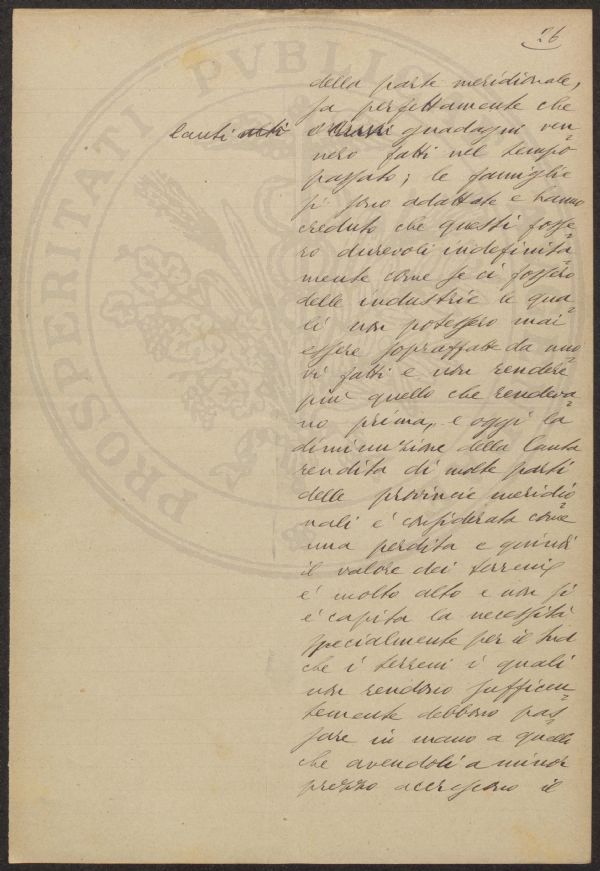 26
della parte meridionale,
sa perfettamente che
lauti alti
guadagni ven-
nero fatti nel tempo
passato; le famiglie
si sono adattate e hanno
creduto che questi fosse-
ro durevoli indefinita-
mente come se ci fossero
delle industrie le qua-
li non potessero mai
essere sopraffatte da nuo-
vi fatti e non rendere
più quello che rendeva-
no prima, e oggi la
diminuzione della lauta
rendita di molte parti
delle provincie meridio-
nali è considerata come
una perdita e quindi
il valore dei terreni
è molto alto e non si
è capita la necessità
specialmente per il Sud
che i terreni i quali
non rendono sufficien-
temente debbono pas-
sare in mano a quelli
che avendoli a minor
prezzo accrescono il
PROSPERITATI PVBLIC